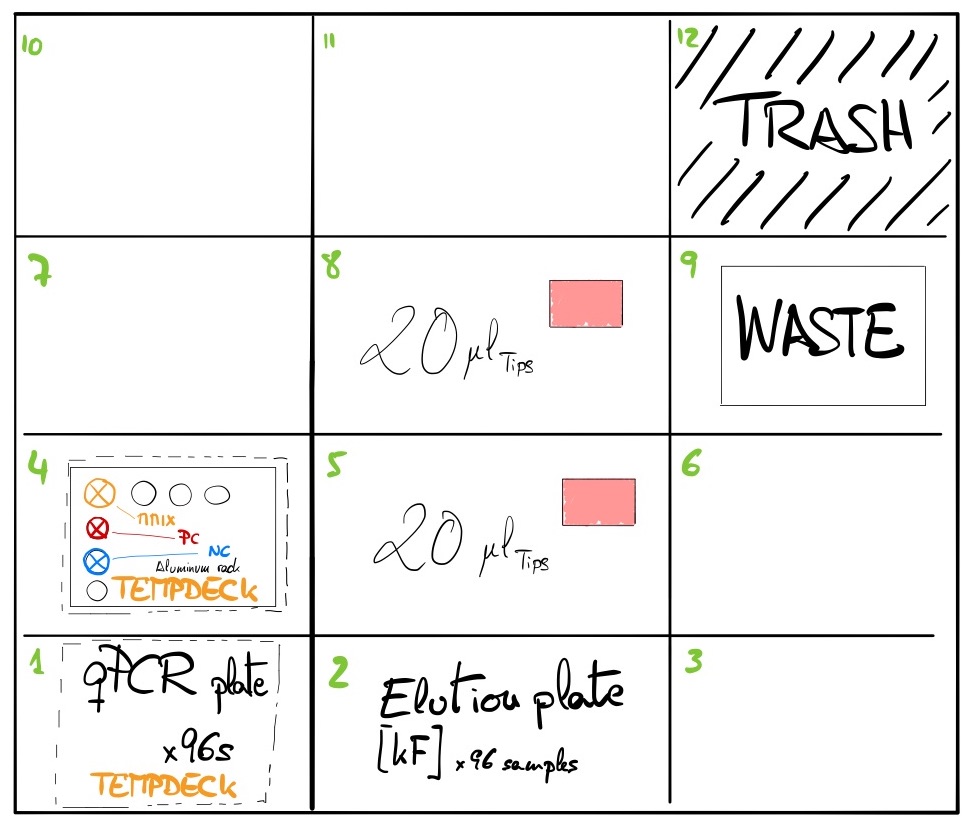 10
11
12
TRASH
7
8
20 µl Tips
9
WASTE
4
MMIX
PC
NC
Aluminum rack
TEMPDECK
5
20 µl Tips
6
1
qPCR plate
x96s
TEMPDECK
2
Elution plate
[kF] x 96 samples
3